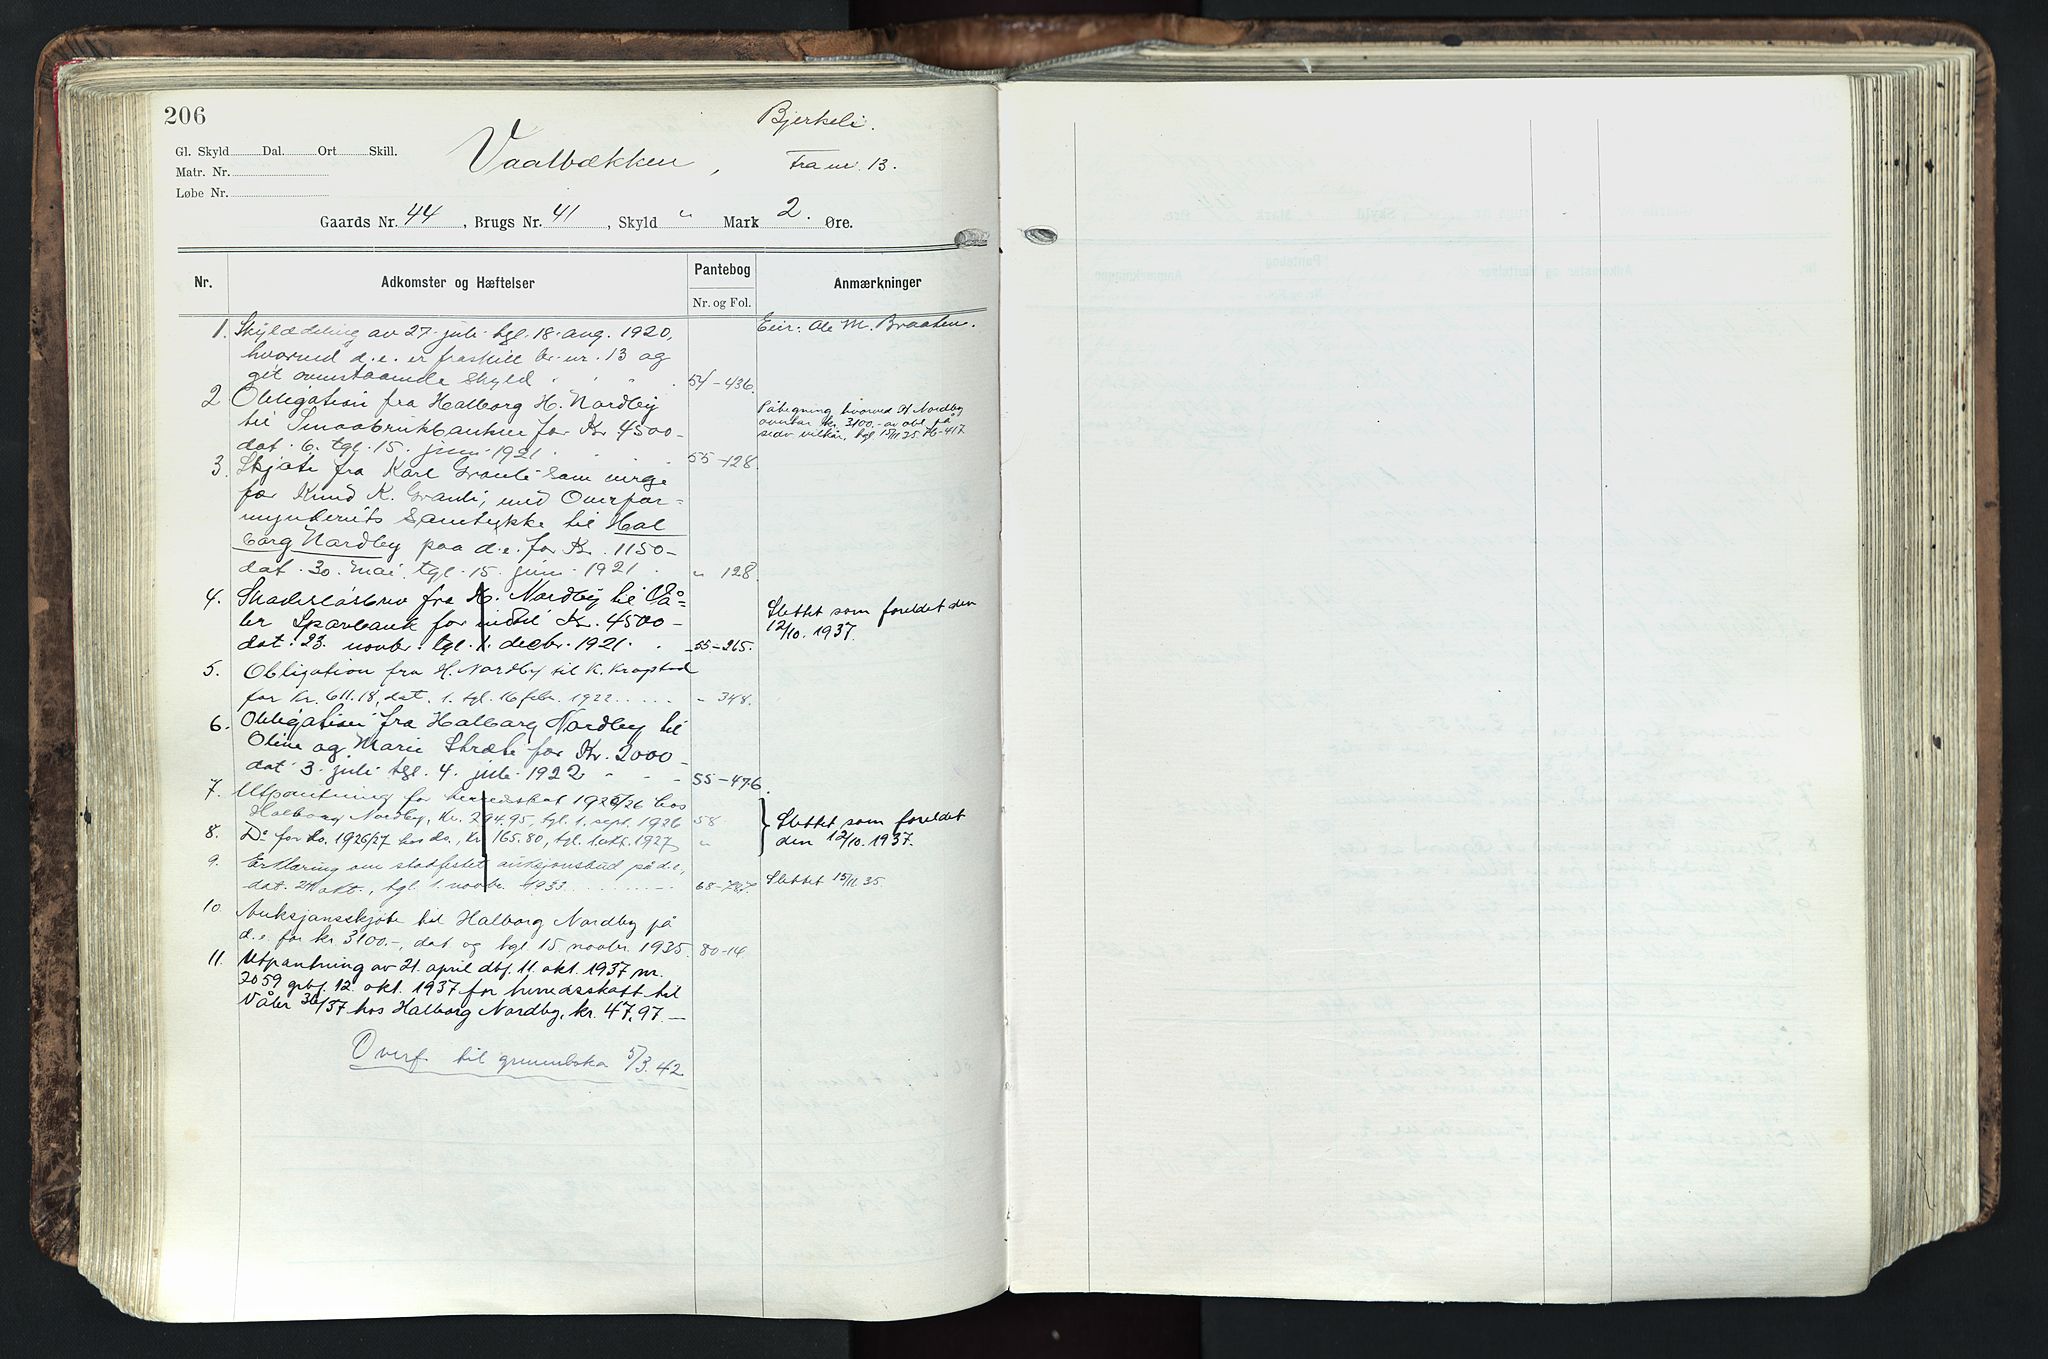 206
Bjerkeli.
Gl. Skyld Dal. Ort Skill.
Vaalbækken, Fra nr. 13.
Matr. Nr.
Løbe Nr.
Gaards Nr. 44, Brugs Nr. 41, Skyld " Mark 2. Øre.
Nr. Adkomster og Hæftelser Pantebog Anmærkninger
Nr. og Fol.
1. Skylddeling av 27. juli tgl. 18. aug. 1920, Eier: Ole M. Braaten.
hvorved d.e. er fraskilt br. nr. 13 og
git ovenstaaende skyld 54-436
2 Obligation fra Halborg H. Nordby
til Smaabrukbanken for Kr 4500-
dat. 6. tgl. 15. juni 1921 55-128
Påtegning hvorved H Nordby
overtar kr. 3100.- av obl. på
sedv vilkår, tgl 15/11 35 76-417
3. Skjøte fra Karl Granli som verge
for Knud K. Granli, med Overfor=
mynderiets samtykke til Hal
borg Nordby paa d.e. for Kr. 1150-
dat. 30. mai tgl. 15. juni 1921. " 128
4. Skadesløsbrev fra H. Nordby til Vå=
ler Sparebank for indtil Kr. 4500-
dat. 23. novbr. tgl. 1. decbr. 1921. 55-265.
Slettet som foreldet den
12/10. 1937.
5. Obligation fra H. Nordby til K. Kropstad
for Kr. 611.18, dat. 1. tgl. 16 febr. 1922 " 348.
6. Obligation fra Halborg Nordby til
Oline og Marie Stræte for Kr. 2000-
dat 3. juli tgl. 4. juli 1922 55-476.
7. Utpantning for herredskat 1925/26 hos
Halborg Nordby, Kr. 294.95, tgl. 1. sept. 1926 58
8. Do for do. 1926/27 hos do., Kr 165.80, tgl. 1. okt. 1927 "
Slettet som foreldet
den 12/10. 1937.
9. Erklæring om stadfestet auksjonsbud på d.e,
dat. 24 okt., tgl. 1. novbr. 1933 68-787. Slettet 15/11. 35.
10. Auksjonsskjøte til Halborg Nordby på
d.e. for kr. 3100.-, dat og tgl. 15 novbr. 1935. 80-14
11. Utpantning av 21. april dbf. 11. okt. 1937 nr.
2059 grbf. 12. okt. 1937 for herredsskatt til
Våler 36/37 hos Halborg Nordby, kr. 47,97.-
Overf. til grunnboka 5/3. 42